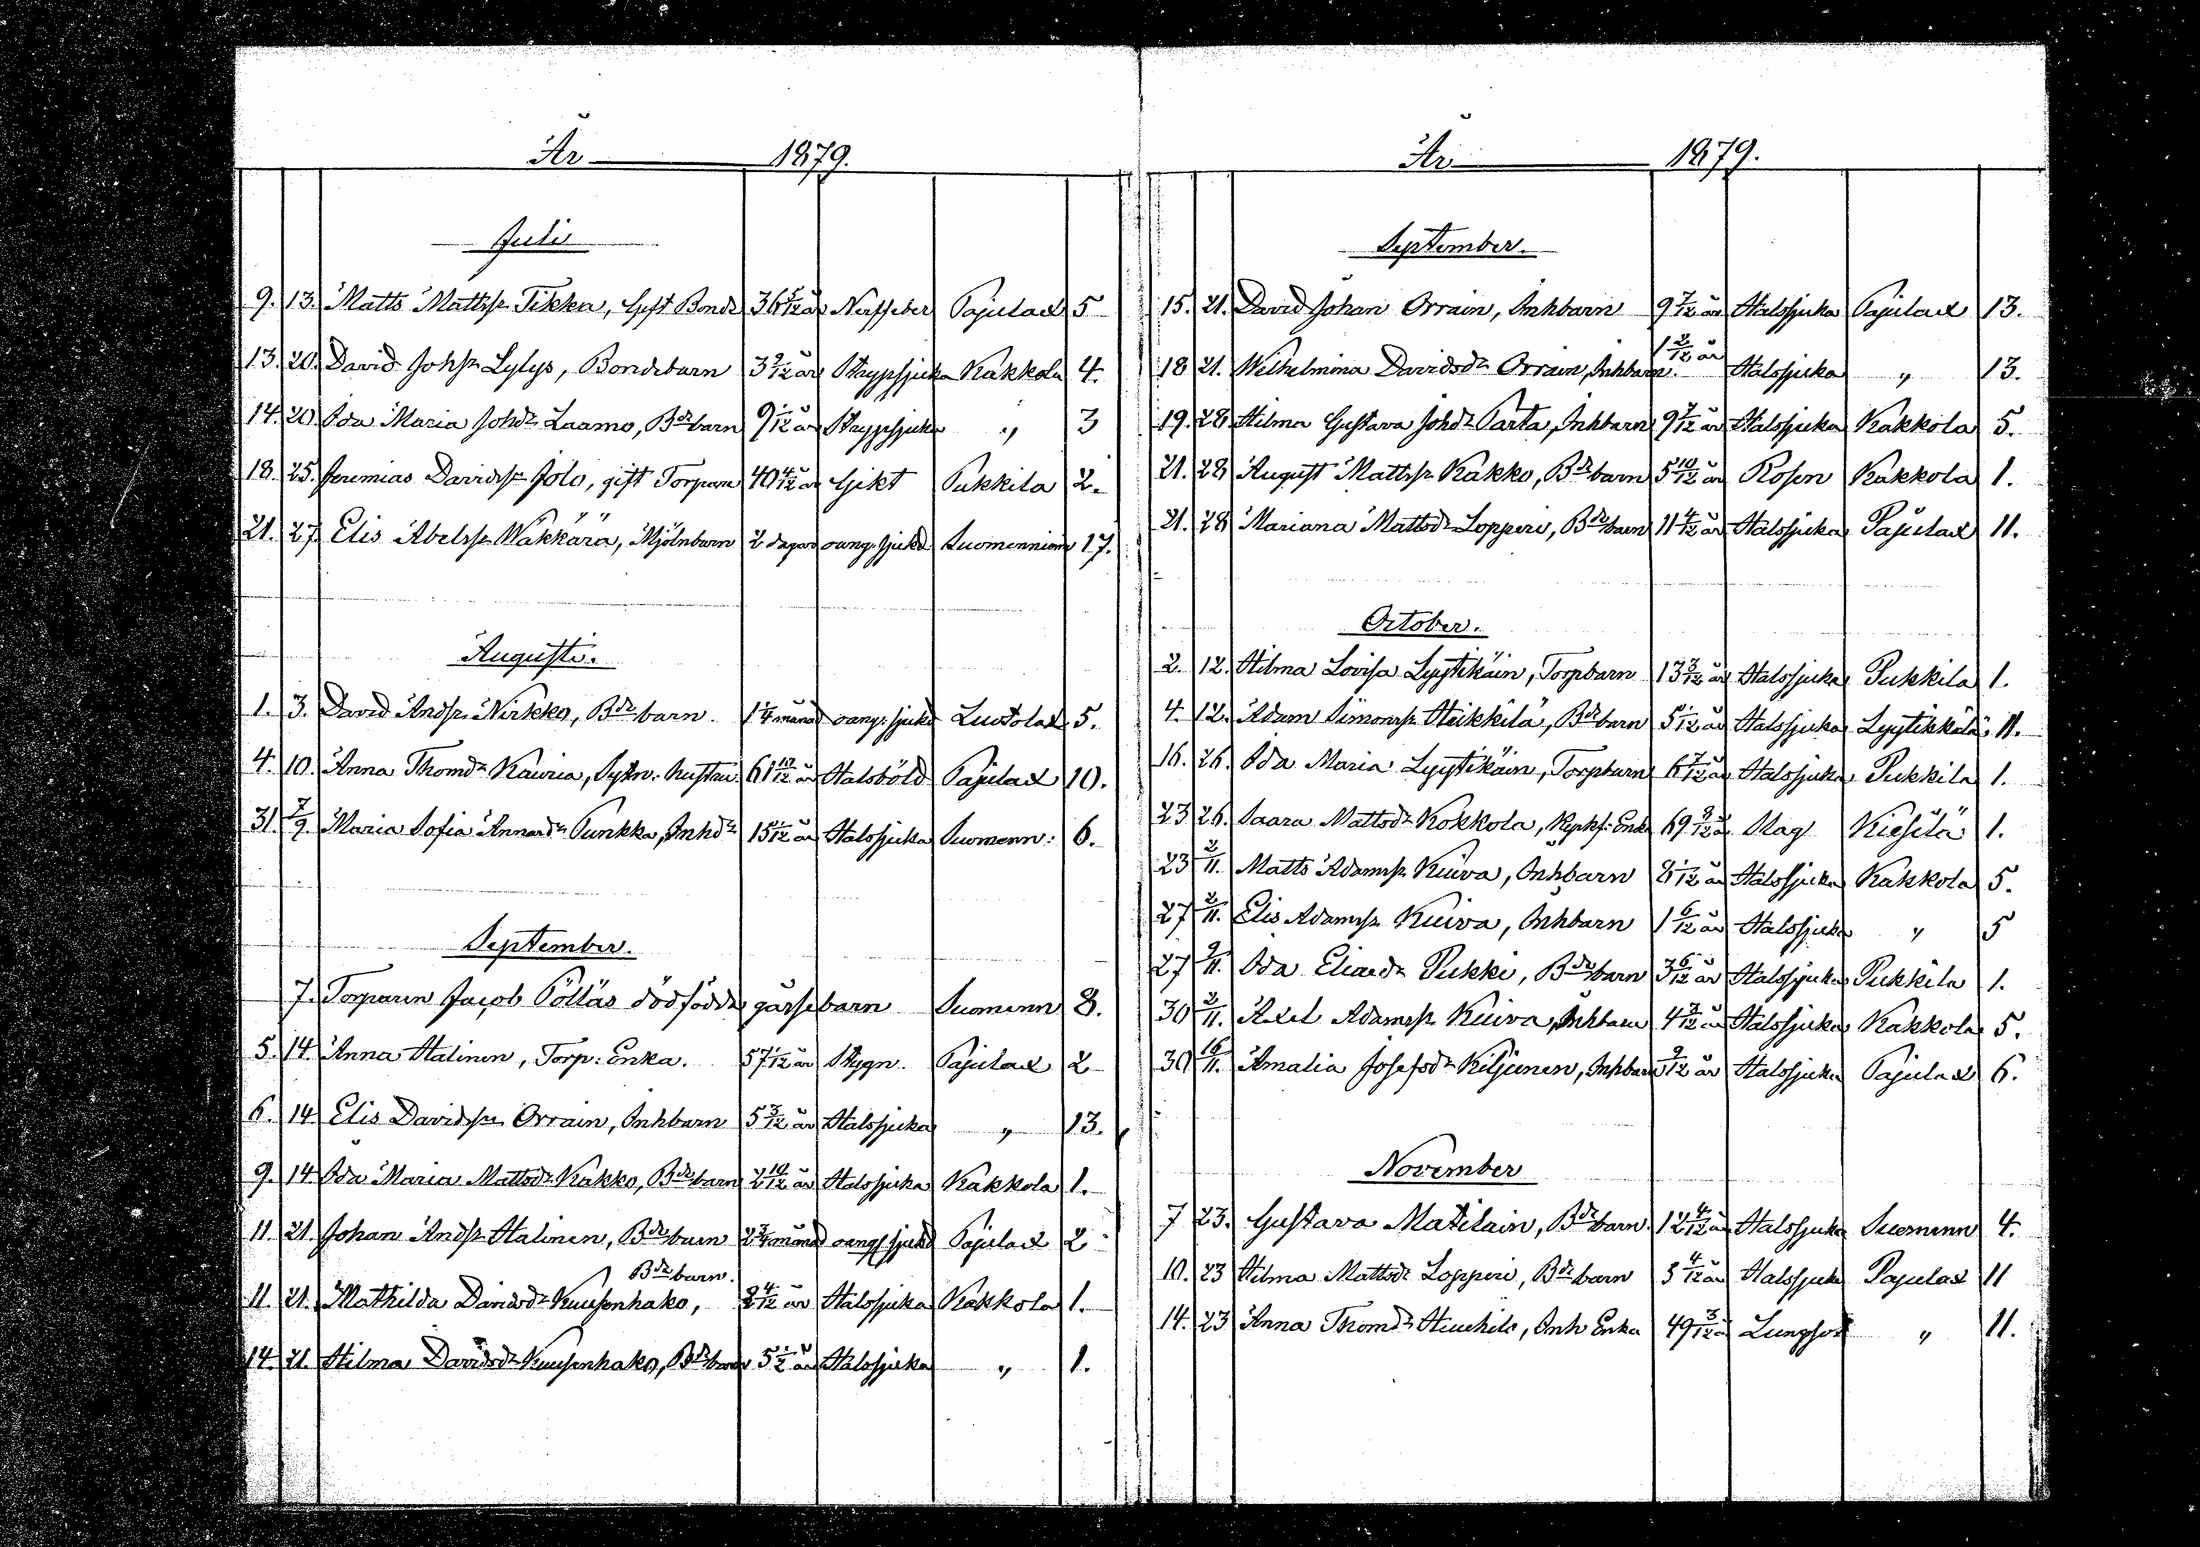 År 1879.
Juli
9. 13. Matts Mattss. Tikka, Gift Bonde 36 5/12 år Nerffeber Pajulax 5
13. 20. David Johss. Lylys, Bondebarn 3 9/12 år Strypsjuka Kakkola 4.
14. 20. Ida Maria Johdr Laamo, Bdebarn 9 1/12 år Strypsjuka " 3
18. 25. Jeremias Davidss. Jolo, gift Torpare 40 4/12 år Gikt Pukkila 2.
21. 27. Elis Abelss. Wäkkärä, Mjölnbarn 2 dagar oang. sjukd Suomenniemi 17.
Augusti.
1. 3. David Andss. Nirkko, Bdebarn. 1 1/4 månad oang. sjukd Luotolax 5.
4. 10. Anna Thomdr Kauria, Sytn. hustru 61 10/12 år Halsböld Pajulax 10.
31. 7/9. Maria Sofia Annasdr Punkka, Inhdr 15 1/12 år Halssjuka Suomenn: 6.
September.
7. Torparen Jacob Pölläs dödfödde gåssebarn Suomenn 8.
5. 14. Anna Halinen, Torp: Enka. 57 1/12 år Stygn. Pajulax 2
6. 14 Elis Davidss. Orrain, Inhbarn 5 3/12 år Halssjuka " 13.
9. 14 Ida Maria Mattsdr Kakko, Bdebarn 2 10/12 år Halssjuka Kakkola 1.
11. 21. Johan Andss. Halinen, Bdebarn 2 3/4 månad oang. sjukd Pajulax 2
Bdebarn.
11. 21. Mathilda Davidsdr Kuusenhako, 8 4/12 år Halssjuka Kakkola 1.
14. 21. Hilma Davidsdr Kuusenhako, Bdebarn 5 1/2 år Halssjuka " 1.
År 1879.
September.
15. 21. David Johan Orrain, Inhbarn 9 7/12 år Halssjuka Pajulax 13.
18 21. Wilhelmina Davidsdr Orrain, Inhbarn. 1 2/12 år Halssjuka " 13.
19. 28. Hilma Gustava Johdr Parta, Inhbarn 9 7/12 år Halssjuka Kakkola 5.
21. 28 August Mattss. Kakko, Bdebarn 5 10/12 år Rosen Kakkola 1.
21. 28 Mariana Mattsdr Lopperi, Bdebarn 11 4/12 år Halssjuka Pajulax 11.
October.
2. 12. Hilma Lovisa Lyytikäin, Torpbarn 13 3/12 år Halssjuka Pukkila 1.
4. 12. Adam Simonss. Heikkilä, Bdebarn 5 1/12 år Halssjuka Lyytikkälä 11.
16. 26. Ida Maria Lyytikäin, Torpbarn 6 7/12 år Halssjuka Pukkila 1.
23 26. Saara Mattsdr Kokkola, Enka 69 8/12 år Slag Kiesilä 1.
23 2/11. Matts Adamss. Kuiva, Inhbarn 8 1/12 år Halssjuka Kakkola 5.
27 2/11. Elis Adamss. Kuiva, Inhbarn 1 6/12 år Halssjuka " 5
27 9/11. Ida Eliasdr Pukki, Bdebarn 3 6/12 år Halssjuka Pukkila 1.
30 2/11. Axel Adamss. Kuiva, Inhbarn 4 9/12 år Halssjuka Kakkola 5.
30 16/11. Amalia Josefsdr Kiljunen, Inhbarn 9/12 år Halssjuka Pajulax 6.
November
7 23. Gustava Matilain, Bdebarn. 12 4/12 år Halssjuka Suomenn 4.
10. 23 Hilma Mattsdr Lopperi, Bdebarn 3 4/12 år Halssjuka Pajulax 11
14. 23 Anna Thomdr Inh Enka 49 3/12 år Lungsot " 11.